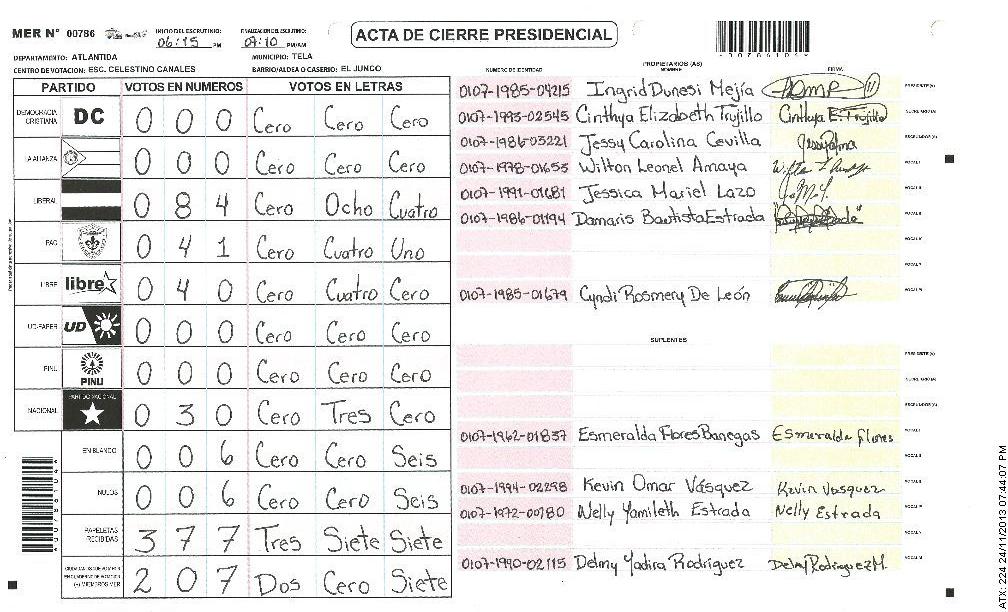 MER N° 00786
INICIO DEL ESCRUTINIO: 06:15 PM
FINALIZACION DEL ESCRUTINIO: 07:10 PM/AM
ACTA DE CIERRE PRESIDENCIAL
DEPARTAMENTO: ATLANTIDA
MUNICIPIO: TELA
CENTRO DE VOTACION: ESC. CELESTINO CANALES
BARRIO/ALDEA O CASERIO: EL JUNCO
PARTIDO VOTOS EN NUMEROS VOTOS EN LETRAS
DEMOCRACIA CRISTIANA DC 0 0 0 Cero Cero Cero
LA ALIANZA 0 0 0 Cero Cero Cero
LIBERAL 0 8 4 Cero Ocho Cuatro
PAC 0 4 1 Cero Cuatro Uno
LIBRE libre 0 4 0 Cero Cuatro Cero
UD-FAPER UD 0 0 0 Cero Cero Cero
PINU PINU 0 0 0 Cero Cero Cero
NACIONAL PARTIDO NACIONAL 0 3 0 Cero Tres Cero
EN BLANCO 0 0 6 Cero Cero Seis
NULOS 0 0 6 Cero Cero Seis
PAPELETAS RECIBIDAS 3 7 7 Tres Siete Siete
CIUDADANOS QUE VOTARON EN CUADERNO DE VOTACION (+) MIEMBROS MER 2 0 7 Dos Cero Siete
PROPIETARIOS (AS)
NUMERO DE IDENTIDAD NOMBRE FIRMA
0107-1985-04215 Ingrid Dunesi Mejía PRESIDENTE (A)
0107-1993-02545 Cinthya Elizabeth Trujillo Cinthya E. Trujillo SECRETARIO (A)
0107-1986-03221 Jessy Carolina Cevilla ESCRUTADOR (A)
0107-1978-01655 Wilton Leonel Amaya VOCAL I
0107-1991-01681 Jessica Mariel Lazo VOCAL II
0107-1986-01194 Damaris Bautista Estrada VOCAL III
VOCAL IV
VOCAL V
0107-1985-01679 Cyndi Rosmery De León VOCAL VI
SUPLENTES
PRESIDENTE (A)
SECRETARIO (A)
ESCRUTADOR (A)
0107-1962-01837 Esmeralda Flores Banegas Esmeralda flores VOCAL I
VOCAL II
0107-1994-02298 Kevin Omar Vásquez Kevin Vasquez VOCAL III
0107-1972-00780 Nelly Yamileth Estrada Nelly Estrada VOCAL IV
VOCAL V
0107-1990-02115 Delmy Yadira Rodriguez Delmy Rodriguez M. VOCAL VI
ATX: 224 24/11/2013 07:44:07 PM